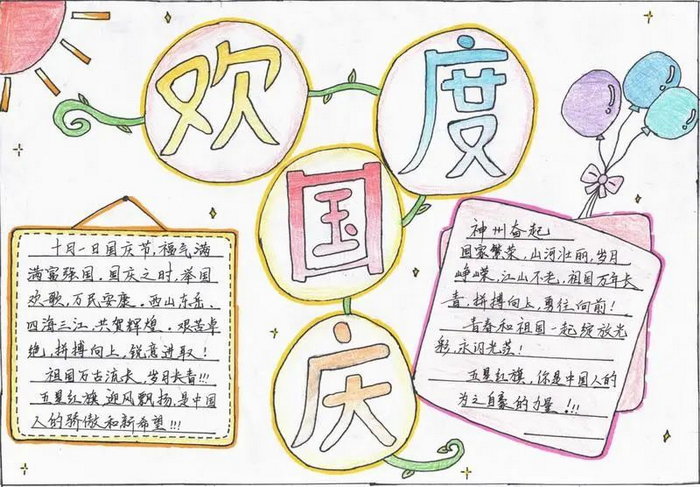 欢度
国
庆
十月一日国庆节,福气满
满富强国,国庆之时,举国
欢歌,万民安康,西山东岳,
四海三江,共贺辉煌,艰苦卓
绝,拼搏向上,锐意进取!
祖国万古流长,岁月长青!!!
五星红旗 迎风飘扬,是中国
人的骄傲和新希望!!!
神州奋起
国家繁荣,山河壮丽,岁月
峥嵘,江山不老,祖国万年长
青,拼搏向上,勇往向前!
青春和祖国一起绽放光
彩,永闪光芒!
五星红旗,你是中国人的
为之自豪的力量!!!